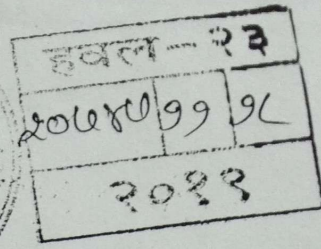 हवल - २३
२०७४७ ११ १८
२०११